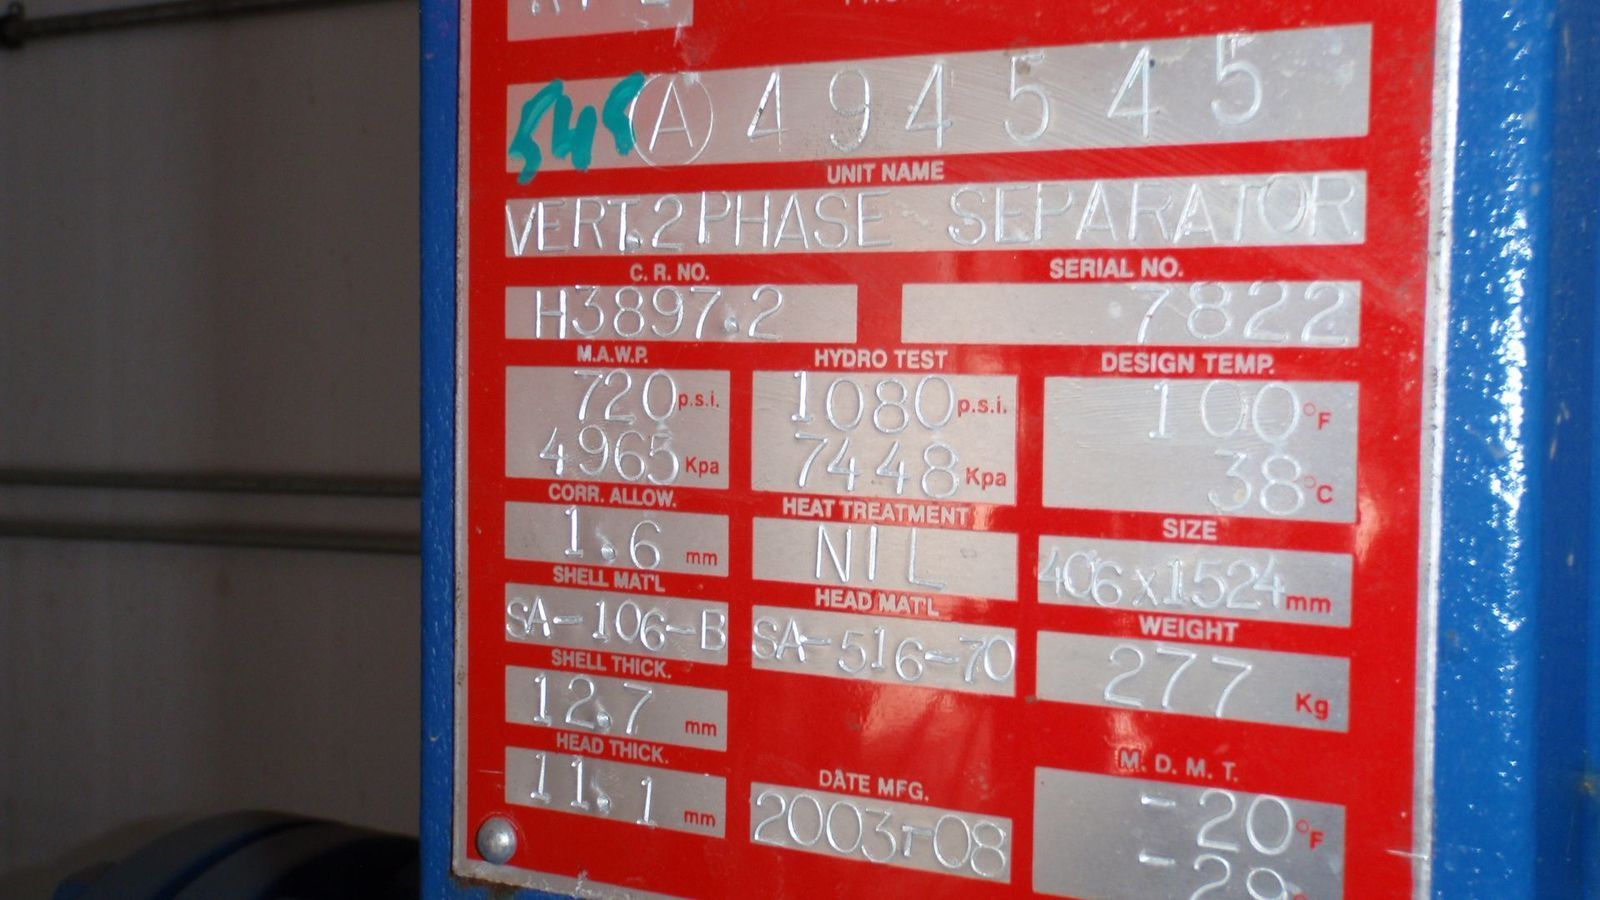 545 Ⓐ 494545
UNIT NAME
VERT. 2 PHASE SEPARATOR
C. R. NO. SERIAL NO.
H3897.2 7822
M.A.W.P. HYDRO TEST DESIGN TEMP.
720 p.s.i. 1080 p.s.i. 100 °F
4965 Kpa 7448 Kpa 38 °C
CORR. ALLOW. HEAT TREATMENT SIZE
1.6 mm NIL 406x1524 mm
SHELL MAT'L HEAD MAT'L WEIGHT
SA-106-B SA-516-70 277 Kg
SHELL THICK.
12.7 mm
HEAD THICK. DATE MFG. M. D. M. T.
11.1 mm 2003-08 -20 °F
-29